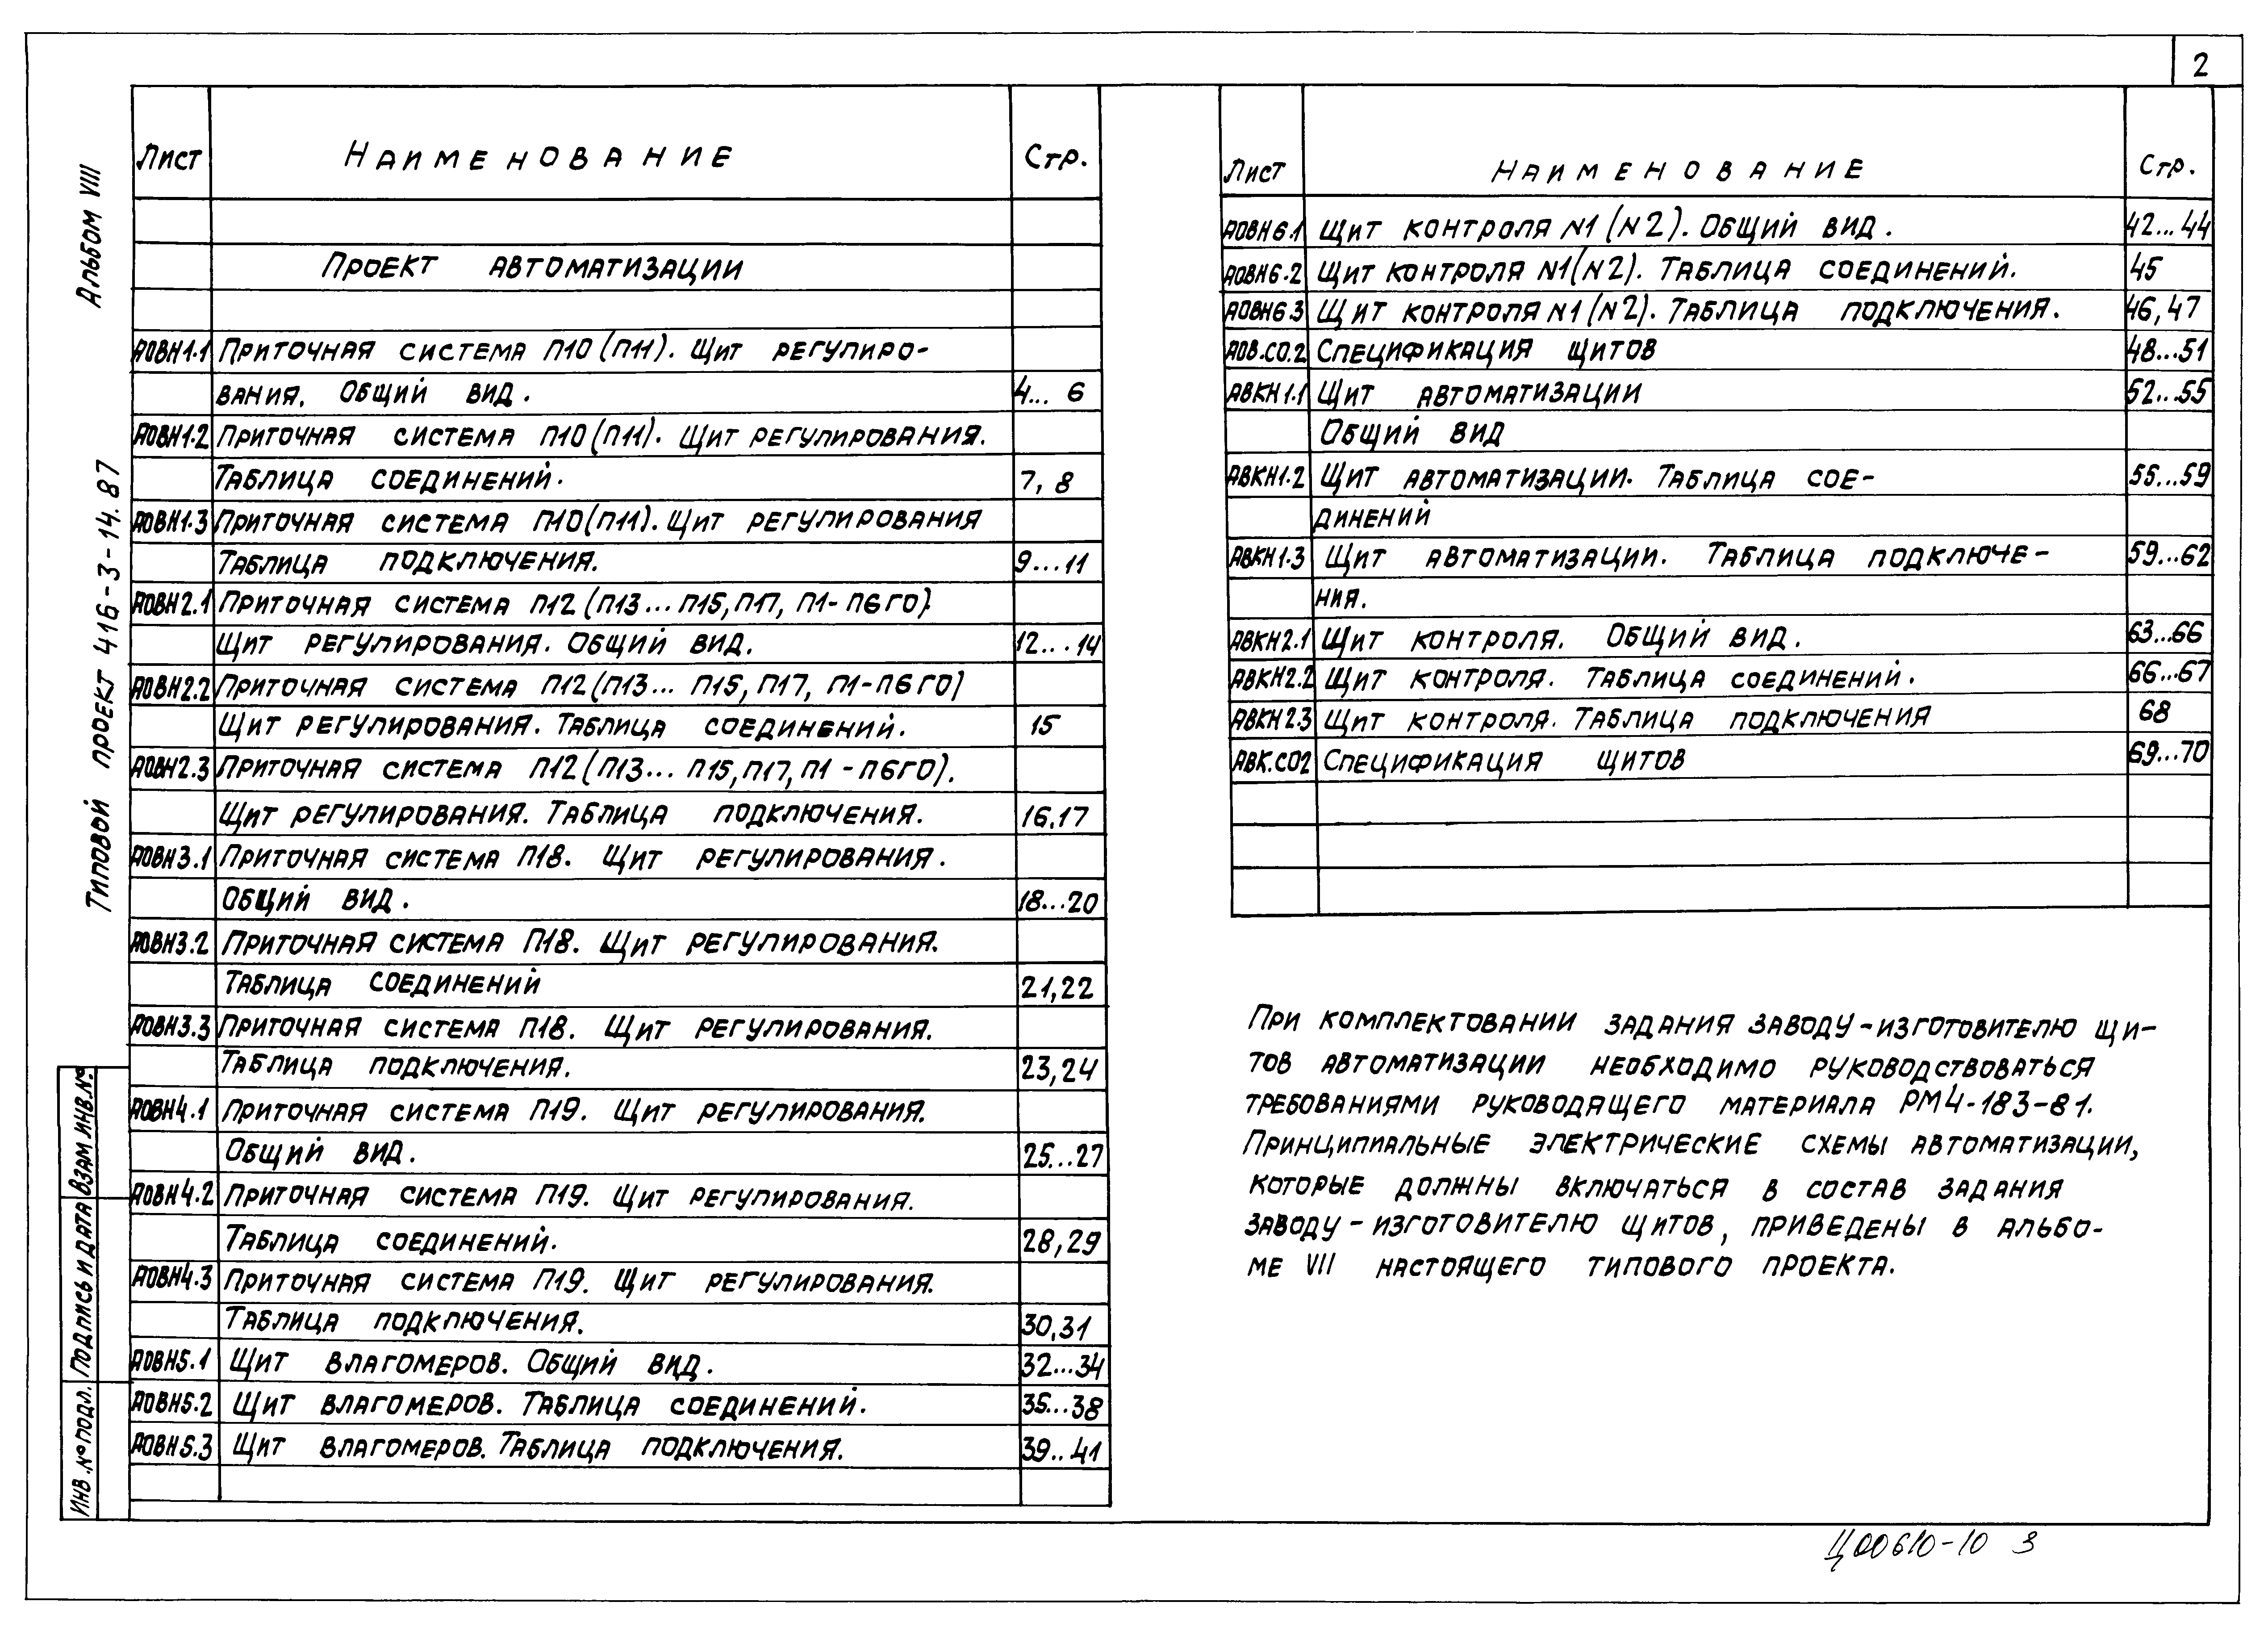 2
Альбом VIII
Типовой проект 416-3-14.87
Лист Наименование Стр.
Проект автоматизации
АОВН1.1 Приточная система П10 (П11). Щит регулиро-
вания. Общий вид. 4... 6
АОВН1.2 Приточная система П10 (П11). Щит регулирования.
Таблица соединений. 7, 8
АОВН1.3 Приточная система П10 (П11). Щит регулирования
Таблица подключения. 9...11
АОВН2.1 Приточная система П12 (П13... П15, П17, П1-П6ГО).
Щит регулирования. Общий вид. 12...14
АОВН2.2 Приточная система П12 (П13... П15, П17, П1-П6ГО)
Щит регулирования. Таблица соединений. 15
АОВН2.3 Приточная система П12 (П13... П15, П17, П1-П6ГО).
Щит регулирования. Таблица подключения. 16,17
АОВН3.1 Приточная система П18. Щит регулирования.
Общий вид. 18...20
АОВН3.2 Приточная система П18. Щит регулирования.
Таблица соединений 21,22
АОВН3.3 Приточная система П18. Щит регулирования.
Таблица подключения. 23,24
АОВН4.1 Приточная система П19. Щит регулирования.
Общий вид. 25...27
АОВН4.2 Приточная система П19. Щит регулирования.
Таблица соединений. 28,29
АОВН4.3 Приточная система П19. Щит регулирования.
Таблица подключения. 30,31
АОВН5.1 Щит влагомеров. Общий вид. 32...34
АОВН5.2 Щит влагомеров. Таблица соединений. 35...38
АОВН5.3 Щит влагомеров. Таблица подключения. 39..41
Лист Наименование Стр.
АОВН6.1 Щит контроля N1 (N2). Общий вид. 42...44
АОВН6.2 Щит контроля N1 (N2). Таблица соединений. 45
АОВН6.3 Щит контроля N1 (N2). Таблица подключения. 46,47
АОВ.СО.2 Спецификация щитов 48...51
АВКН1.1 Щит автоматизации 52...55
Общий вид
АВКН1.2 Щит автоматизации. Таблица сое- 55...59
динений
АВКН1.3 Щит автоматизации. Таблица подключе- 59...62
ния.
АВКН2.1 Щит контроля. Общий вид. 63...66
АВКН2.2 Щит контроля. Таблица соединений. 66...67
АВКН2.3 Щит контроля. Таблица подключения 68
АВК.СО2 Спецификация щитов 69...70
При комплектовании задания заводу-изготовителю щи-
тов автоматизации необходимо руководствоваться
требованиями руководящего материала РМ4-183-81.
Принципиальные электрические схемы автоматизации,
которые должны включаться в состав задания
заводу-изготовителю щитов, приведены в альбо-
ме VII настоящего типового проекта.
Инв.№подл. Подпись и дата Взам инв.№
Ц00610-10 3